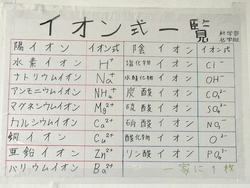 イオン式一覧
陽イオン イオン式 陰イオン イオン式
水素イオン H⁺ 塩化物イオン Cl⁻
ナトリウムイオン Na⁺ 水酸化物イオン OH⁻
アンモニウムイオン NH₄⁺ 炭酸イオン CO₃²⁻
マグネシウムイオン Mg²⁺ 硫酸イオン SO₄²⁻
カルシウムイオン Ca²⁺ 硝酸イオン NO₃⁻
銅イオン Cu²⁺ 酸化物イオン O²⁻
亜鉛イオン Zn²⁺ リン酸イオン PO₄³⁻
バリウムイオン Ba²⁺ 一家に1枚